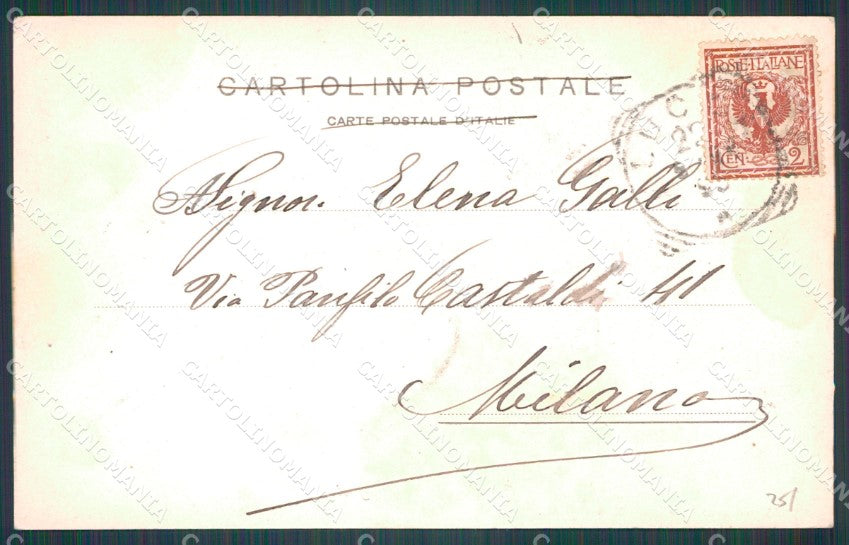 CARTOLINA POSTALE
CARTE POSTALE D'ITALIE
POSTE·ITALIANE
CEN. 2
LUC
Signor. Elena Galli
Via Panfilo Castaldi 41
Milano
25/
CARTOLINOMANIA